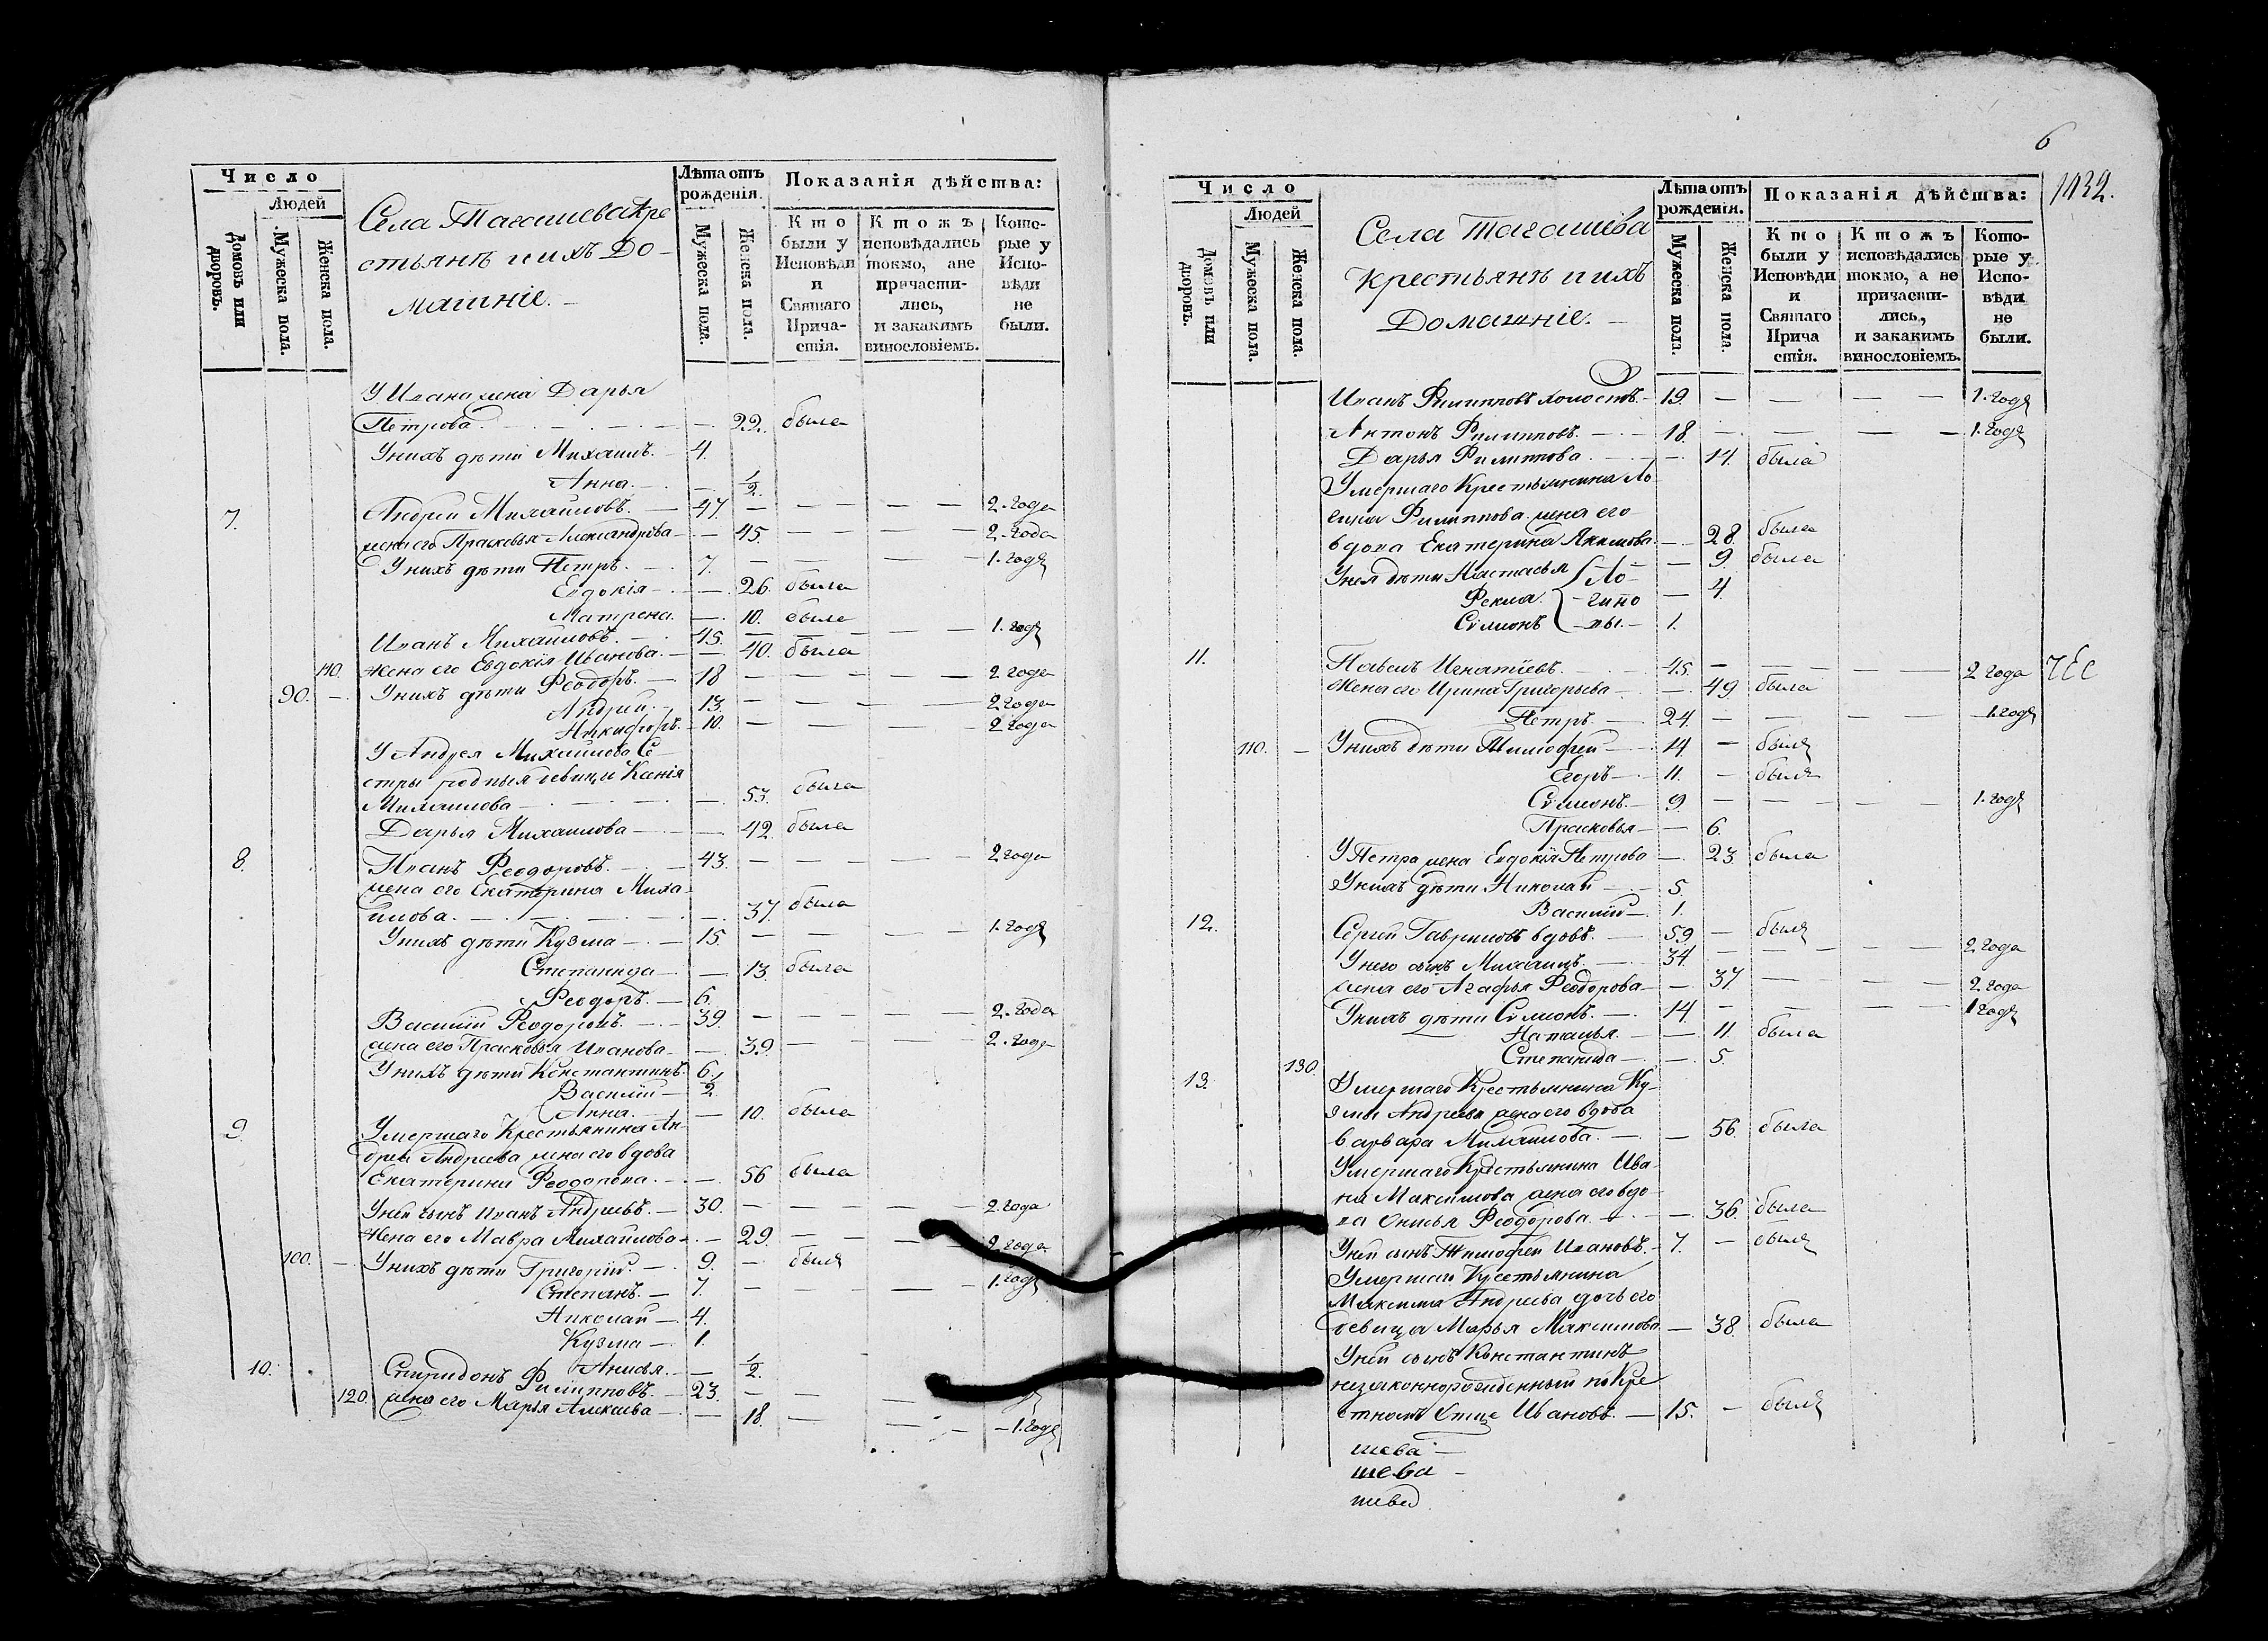 Число
Людей
Домовъ или дворовъ.
Мужеска пола.
Женска пола.
Села Тагашева Кре
стьянъ и ихъ До-
машніе. –
Лѣта отъ рожденія.
Мужеска пола.
Женска пола.
Показанія дѣйства:
Кто были у Исповѣди и Святаго Прича-стія.
Ктожъ исповѣдались токмо, а не причасти-лись, и закакимъ винословіемъ.
Кото-рые у Испо-вѣди не были.
У Ивана жена Дарья
Петрова. – 22. была
У нихъ дѣти Михаилъ. – 4.
Анна. – 1/2.
7. Андрей Михайловъ. – 47. – 2. года
жена его Прасковья Александрова – 45. – 2. года
У нихъ дѣти Петръ. – 7. – 1. годъ
Евдокія – 26. была
Матрена. – 10. была
Иванъ Михайловъ. – 45. – 1. годъ
110. жена его Евдокія Иванова. – 40. была
90. – У нихъ дѣти Феодоръ. – 18 – 2 года
Андрей. – 13. – 2 года
Никифоръ. – 10. – 2 года
У Андрея Михайлова Се-
стры родныя девицы Ксенія
Михаилова – 53. была
Дарья Михаилова – 42. была
8. Иванъ Феодоровъ. – 43. – 2 года
жена его Екатерина Миха-
илова. – 37. была
У нихъ дѣти Кузма – 15. – 1. годъ
Степанида – 13. была
Феодоръ. – 6.
Василій Феодоровъ. – 39. – 2. года
жена его Прасковья Иванова – 39. – 2. года
У нихъ дѣти Константинъ. 6.
Василій – 1/2.
Анна. – 10. была
9. Умершаго Крестьянина Ан-
дрея Андреева жена его вдова
Екатерина Феодорова. – 56 была
У ней сынъ Иванъ Андреевъ. – 30. – 2. года
жена его Мавра Михайлова – 29. – 2 года
100. – У нихъ дѣти Григорій. – 9. – былъ
Степанъ. – 7. – 1. годъ
Николай – 4.
Кузма – 1.
Анисья. – 1/2.
10. Спиридонъ Филипповъ. – 23. –
120. жена его Марья Алексѣева – 18. – 1. годъ
6
1432.
Число
Людей
Домовъ или дворовъ.
Мужеска пола.
Женска пола.
Села Тагашева
Крестьянъ и ихъ
Домашніе. –
Лѣта отъ рожденія.
Мужеска пола.
Женска пола.
Показанія дѣйства:
Кто были у Исповѣди и Святаго Прича стія.
Ктожъ исповѣдались токмо, а не причасти-лись, и закакимъ винословіемъ.
Кото-рые у Испо-вѣди не были.
Иванъ Филипповъ холостъ. – 19. – 1. годъ
Антонъ Филипповъ. – 18. – 1. годъ
Дарья Филиппова. – 14. была
Умершаго Крестьянина Ло-
гина Филиппова жена его
вдова Екатерина Якимова. – 28. была
У нея дѣти Настасья { Ло- – 9. была
Фекла. – гино – 4.
Сімионъ – вы. – 1.
11. Павелъ Игнатіевъ. – 45. – 2 года
жена его Ирина Григорьева – 49. была
Петръ. – 24. – 1. годъ
110. – У нихъ дѣти Тимофей – 14 – былъ
Егоръ – 11. – былъ
Сімионъ. – 9. – 1. годъ
Прасковья – 6.
У Петра жена Евдокія Петрова – 23. была
У нихъ дѣти Николай – 5.
Василій – 1.
12. Сергей Гавриловъ вдовъ. – 59. – былъ
У него сынъ Михаилъ. – 34. – 2 года
жена его Агафья Феодорова – 37. – 2 года
У нихъ дѣти Сімионъ. – 14. – 1 годъ
Наталья. – 11. была
130. Степанида – 5.
13. Умершаго Крестьянина Ку-
змы Андреева жена его вдова
Варвара Михаилова. – 56. была
Умершаго Крестьянина Ива-
на Максимова жена его вдо-
ва Онисья Феодорова. – 36. была
У ней сынъ Тимофей Ивановъ. – 7. – былъ
Умершаго Крестьянина
Максима Андреева дочь его
девица Марья Максимова – 38. была
У ней сынъ Константинъ
незаконнорожденный по Кре
стномъ Отце Ивановъ. – 15. – былъ
шева –
шева –
шева